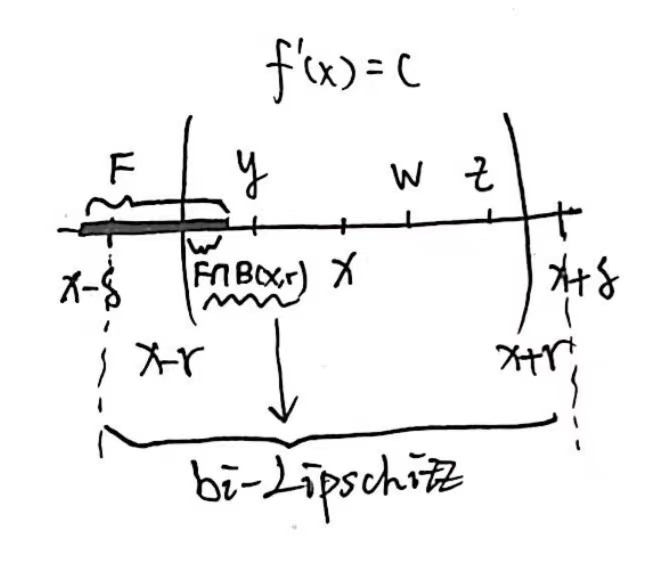 f'(x) = C
F y w z
x-δ F∩B(x,r) x x+δ
x-r x+r
bi-Lipschitz